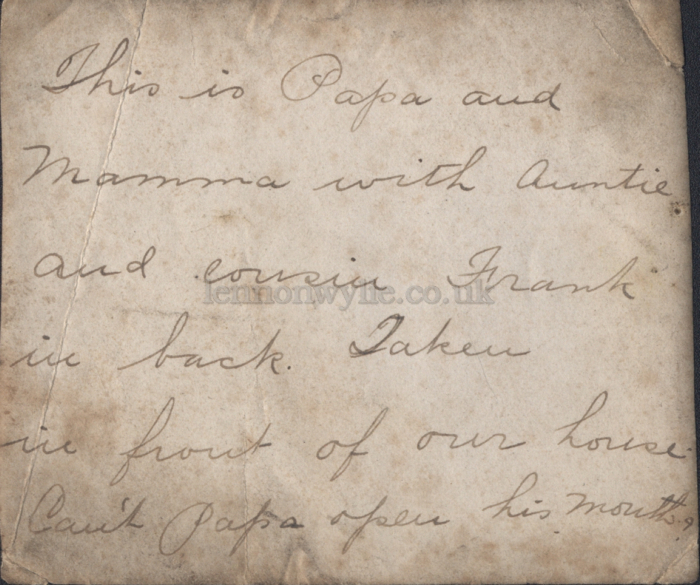 This is Papa and
Mamma with Auntie
and cousin Frank
lennonwylie.co.uk
in back. Taken
in front of our house
Can't Papa open his mouth?